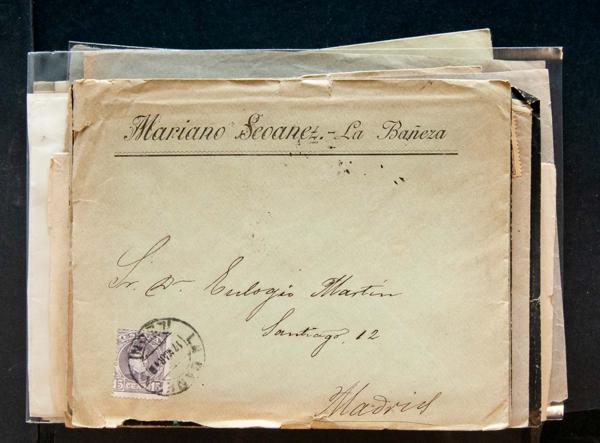 Mariano Seoanez.- La Bañeza
Sr. Dn. Eulogio Martín
Santiago, 12
Madrid
15 CENT. 15